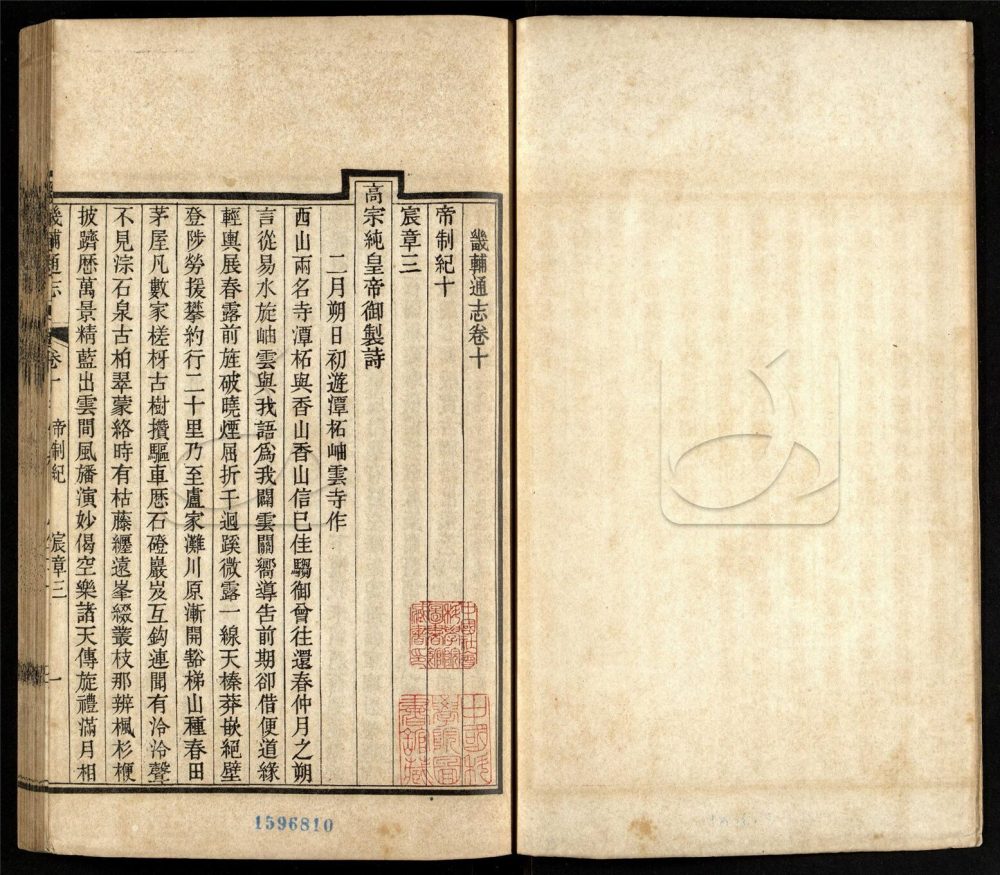 畿輔通志卷十
帝制紀十
宸章三
高宗純皇帝御製詩
二月朔日初遊潭柘岫雲寺作
西山兩名寺潭柘與香山香山信已佳騶御曾往還春仲月之朔
言從易水旋岫雲與我語爲我闢雲關嚮導吿前期卻借便道緣
輕輿展春露前旌破曉煙屈折千迴蹊微露一線天榛莽嵌絕壁
登陟勞援攀約行二十里乃至盧家灘川原漸開豁梯山種春田
茅屋凡數家槎枒古樹攢驅車歷石磴巖岌互鈎連聞有泠泠聲
不見淙石泉古柏翠蒙絡時有枯藤纏遠峯綴叢枝那辨楓杉楩
披躋歷萬景精藍出雲間風旛演妙偈空樂諸天傳旋禮滿月相
畿輔通志
卷十
帝制紀
宸章三
一
中國社會
科學院
圖書館
藏書印
中國科
學院圖
書館藏
1596810